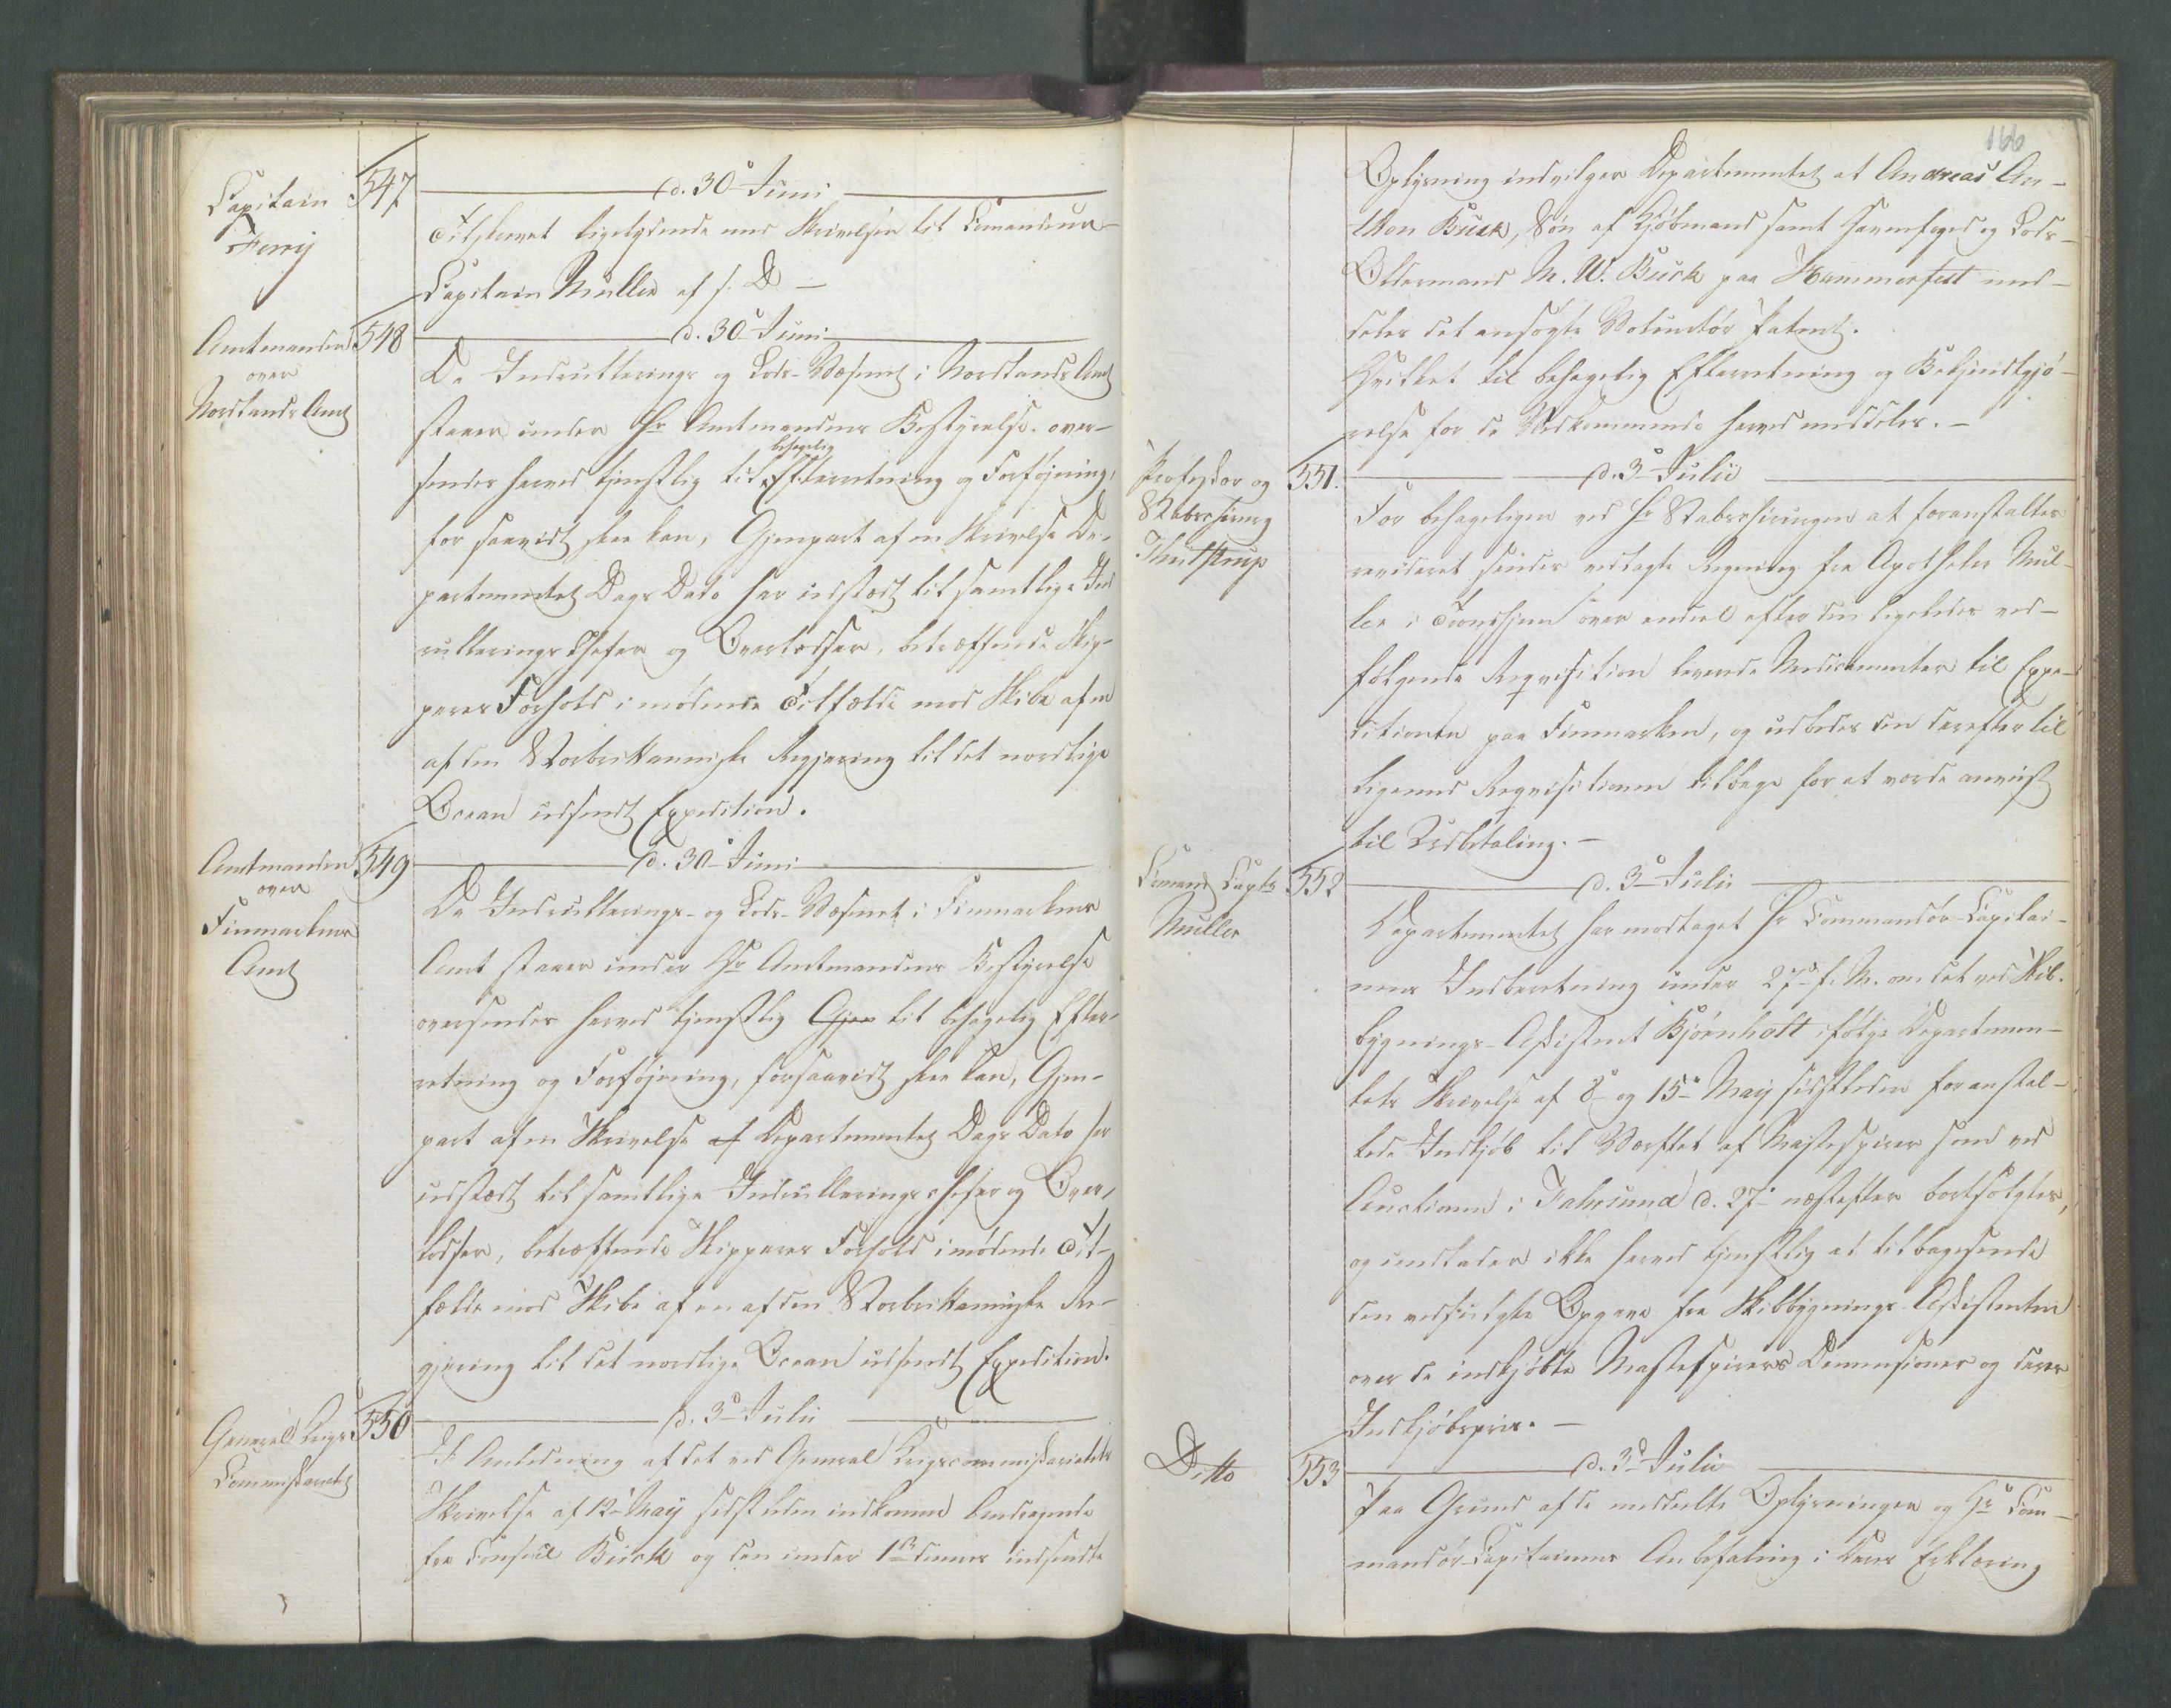 Capitain
Ferrij
547
d. 30d Juni
Tilskrevet ligelydende med Skrivelsen til Comandeur-
Capitain Müller af s: D –
Amtmanden
over
Nordlands Amt
548
d. 30d Juni
Da Indrullerings og Lods-Væsenet i Nordlands Amt
staaer under Hr Amtmandens Bestyrelse over-
sendes herved tjenstlig til behagelig Efterretning og Forføyning,
for saavidt skee kan, Gjenpart af en Skrivelse De-
partementet Dags Dato har udstædt til samtlige Ind
rullerings Chefer og Overlodser, betræffende Skip-
peres Forhold i mødende Tilfælde mod Skibe af en
af den Storbrittanniske Regjering til det nordlige
Ocean udsendt Expedition.
Amtmanden
over
Finmarkens
Amt
549
d. 30d Juni
Da Indrullerings- og Lods-Væsenet i Finmarkens
Amt staaer under Hr Amtmandens Bestyrelse
oversendes herved tjenstlig Gjen til behagelig Efter-
retning og Forføjning, forsaavidt skee kan, Gjen-
part af en Skrivelse af Departementet Dags Dato har
udstædt til samtlige Indrulleringschefer og Over-
lodser, betræffende Skipperes Forhold i mødende Til-
fælde mod Skibe af en af den Storbrittanniske Re-
gjering til det nordlige Ocean udsendt Expedition.
General Krigs
Commissariatet
550
d. 3d Julii
I Anledning af det ved General Krigscommissariatets
Skrivelse af 12 May sidstleden indkomne Andragende
fra Consul Buck og den under 1ste dennes indsendte
166
Oplysning indvilger Departementet at Andreas An-
thon Buck, Søn af Kjøbmand samt Havnefoged og Lods-
Oldermand M. W. Buck paa Hammerfest med-
deles det ansøgte Volentør Patent.
Hvilket til behagelig Efterretning og Bekjendtgjø-
relse for de Vedkommende herved meddeles. –
Professor og
Stabschirurg
Thulstrup
551.
d. 3d Julii
For behageligen ved Hr Stabschirurgen at foranstaltes
revideret sendes vedlagte Regning fra Apotheker Mül-
ler i Trondhjem over endeel efter den ligeledes ved-
følgende Reqvisition leverede Medicamenter til Expe-
ditionen paa Finmarken, og udbedes den derefter til
ligemed Reqvisitionen tilbage for at vorde anviist
til Udbetaling. –
Comand Capt
Müller
552
d. 3d Julii
Departementet har modtaget Hr Commandør-Capitai-
nens Indberetning under 27d f. M. om det ved Skib-
bygnings-Assistent Bjørnholt ifølge Departemen-
tets Skrivelse af 8d og 15d Maij sidstleden foranstal-
tede Indkjøb til Værftet af Mastespirer som ved
Auctionen i Fahrsund d. 27d næstefter bortsolgtes,
og undlader ikke herved tjenstlig at tilbagesende
den vedfulgte Opgave fra Skibbygnings-Assistenten
over de indkjøbte Mastespirers Demensioner og deres
Indkjøbspris. –
Ditto
553
d. 3d Julii
Paa Grund af de meddeelte Oplysninger og Hr Com-
mandør-Capitainens Anbefaling i Deres Erklæring